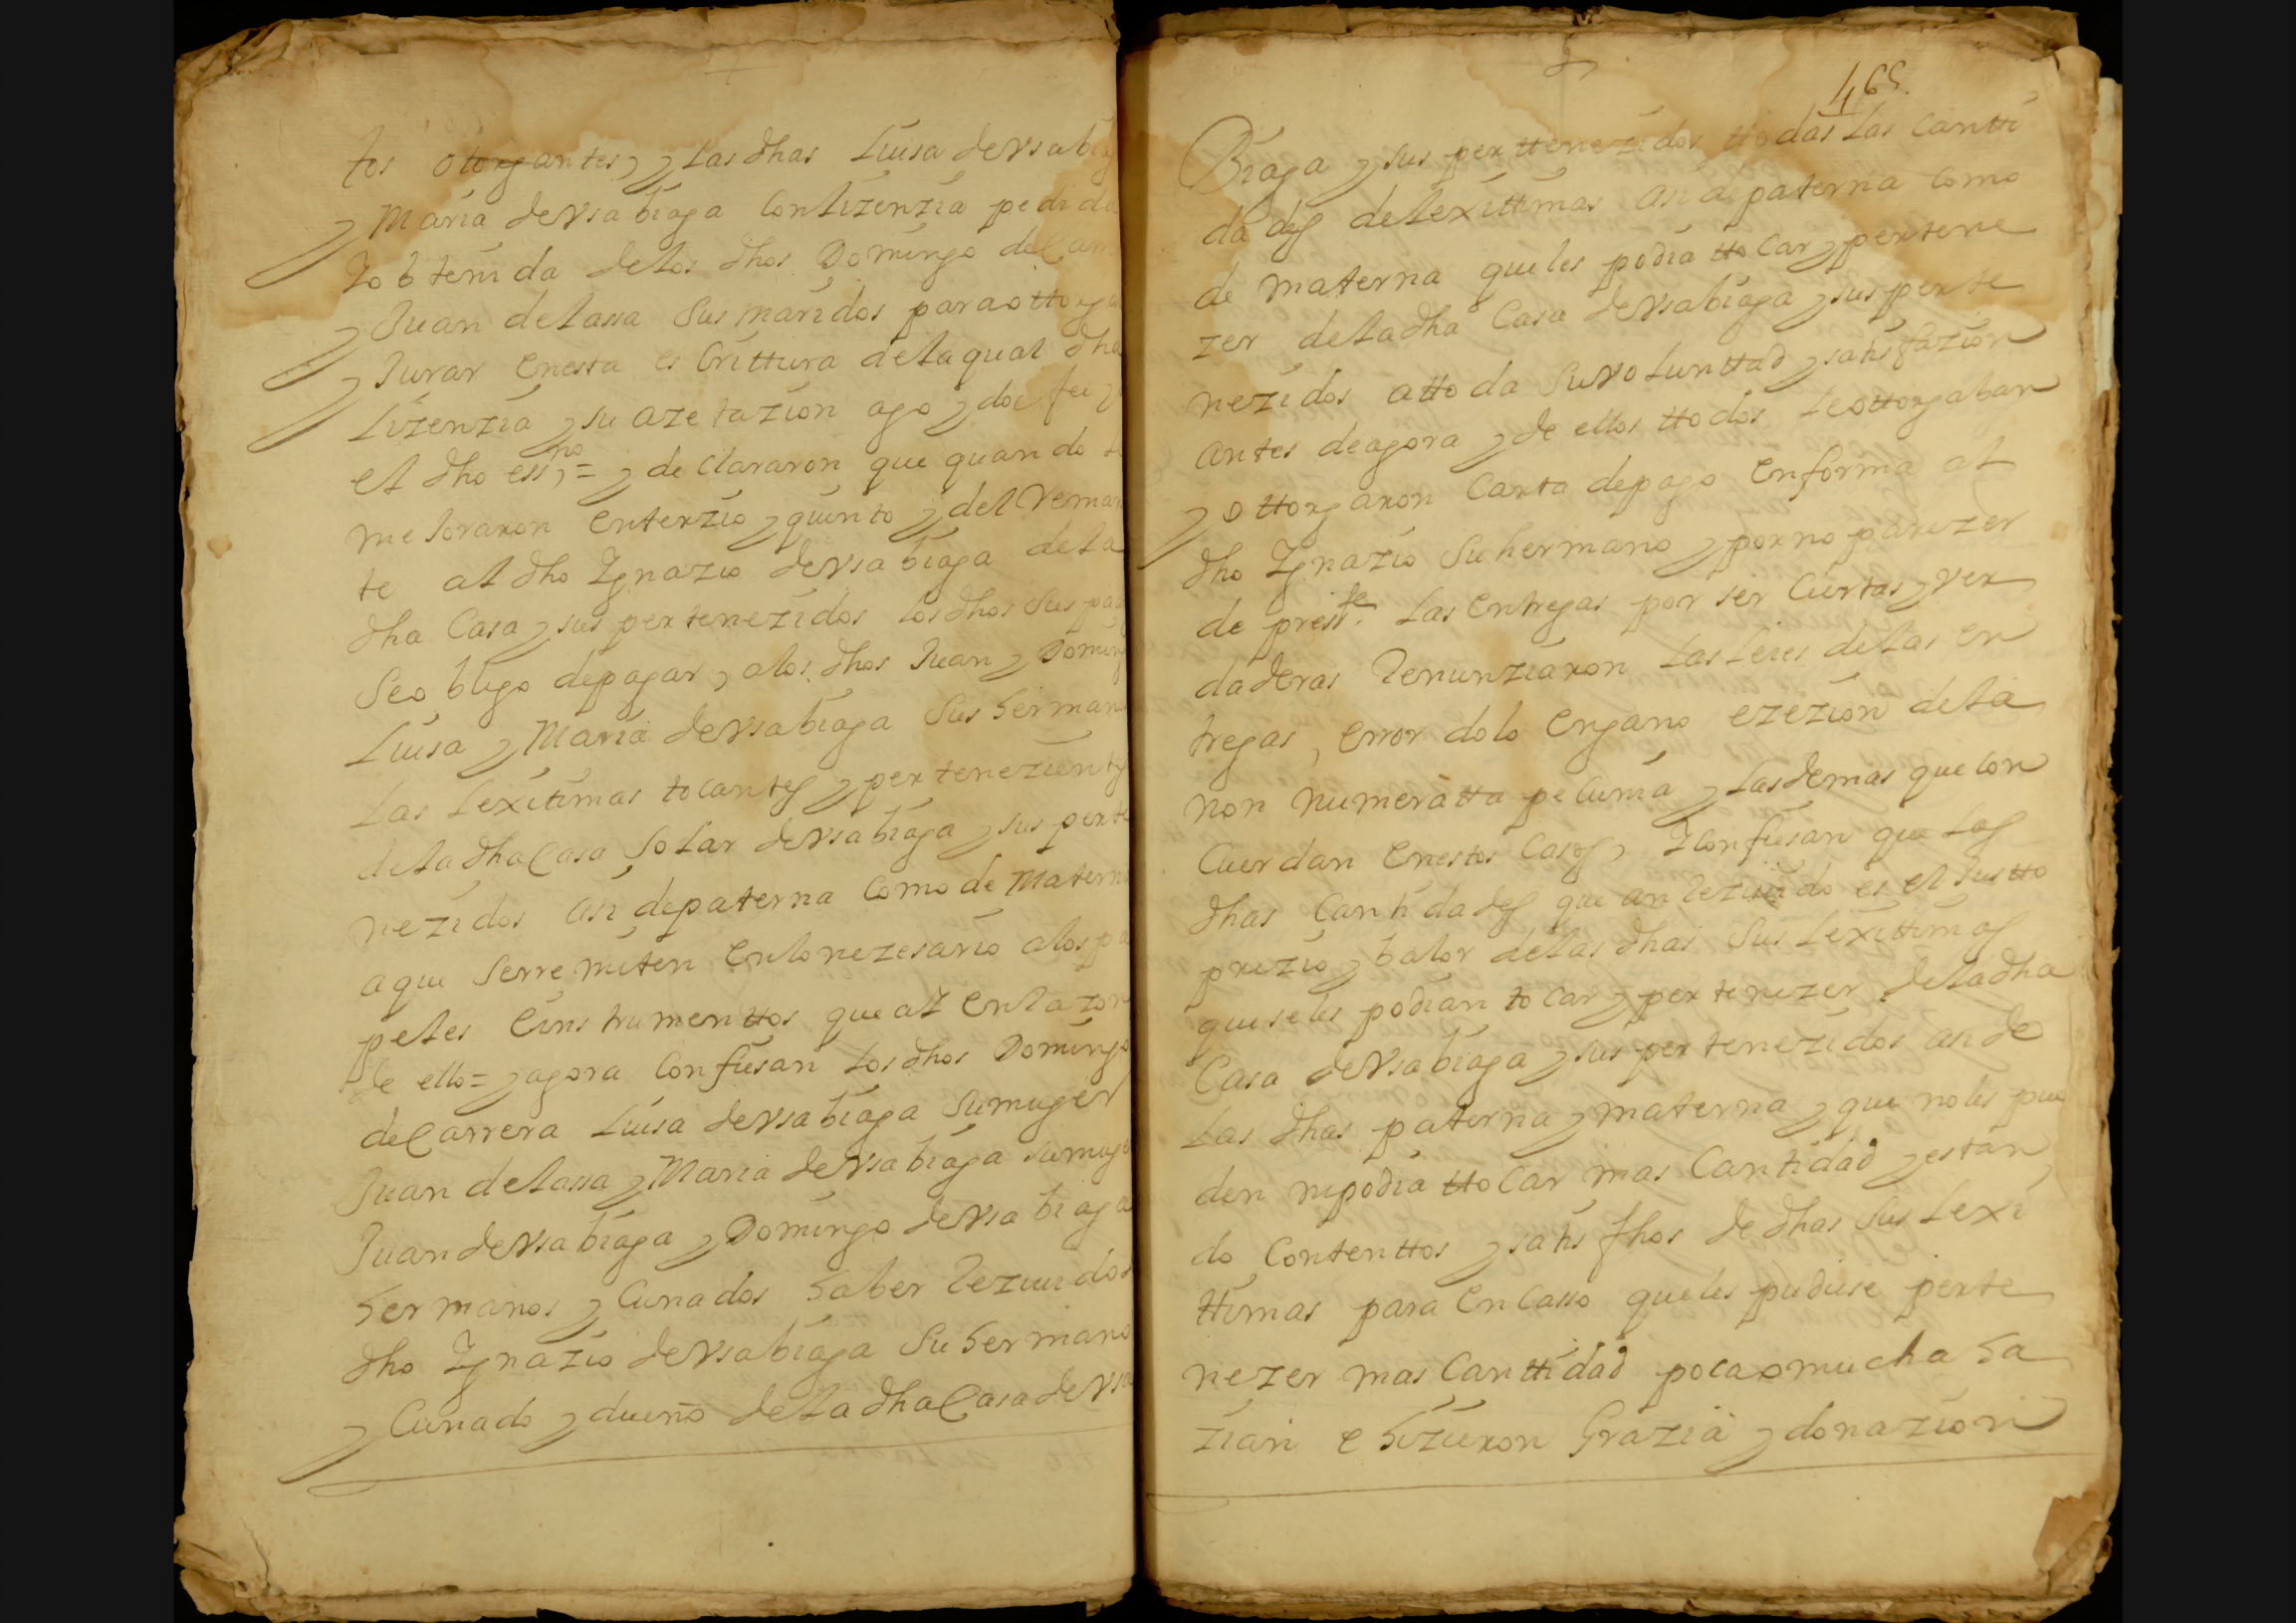 tos otorgantes, y las dhas Luisa de Vsabia
y Maria de Vsabiaga con lizenzia pedida
y obtenida de los dhos Domingo de Carr
y Juan de lassa sus maridos para ottorga
y Jurar en esta escrittura de la qual dha
lizenzia y su azetazion ago y doi fee y
el dho essno = y declararon que quando
mejoraron en terzio y quinto y del Remanen
te al dho Ygnazio de Vsabiaga de la
dha Casa y sus pertenezidos los dhos sus pa
se obligo de pagar, a los dhos Juan y Doming
Luisa y Maria de Vsabiaga sus herman
las lexitimas tocantes y pertenezientes
de la dha Casa solar de Vsabiaga y sus perte
nezidos asi de paterna como de matern
a que se rremiten en lo nezesario a los pa
peles e instrumenttos que al en razon
de ello = y agora confiesan los dhos Domingo
de Carrera Luisa de Vsabiaga su muger
Juan de lassa y Maria de Vsabiaga su muge
Juan de Vsabiaga y Domingo de Vsabiaga
hermanos y cunados haber rezuido
dho Ygnazio de Vsabiaga su hermano
y cunado y dueño de la dha Casa de Vsa
465.
Biaga y sus perttenezidos ttodas las cantti
dades de lexittimas asi de paterna como
de materna que les podia ttocar y pertene
zer de la dha Casa de Vsabiaga y sus perte
nezidos a ttoda su voluntad y satisfazion
antes de agora y de ellos ttodos le ottorgaban
y ottorgaron carta de pago en forma al
dho Ygnazio su hermano y por no parezer
de presste. las entregas por ser ciertas y ver
daderas renunziaron las leies de las en
tregas, error dolo engano ezezion de la
non numeratta pecunia y las demas que con
cuerdan en estos casos, y confiesan que las
dhas cantidades que an rezuido es el justto
prezio y balor de las dhas sus lexittimas
que se les podian tocar y pertenezer de la dha
Casa de Vsabiaga y sus pertenezidos asi de
las dhas paterna y materna y que no les pue
den ni podia ttocar mas cantidad y estan
do contenttos y satisfhos de dhas sus lexi
ttimas para en casso que les pudiese perte
nezer mas canttidad poca o mucha ha
zian e hizieron grazia y donazion